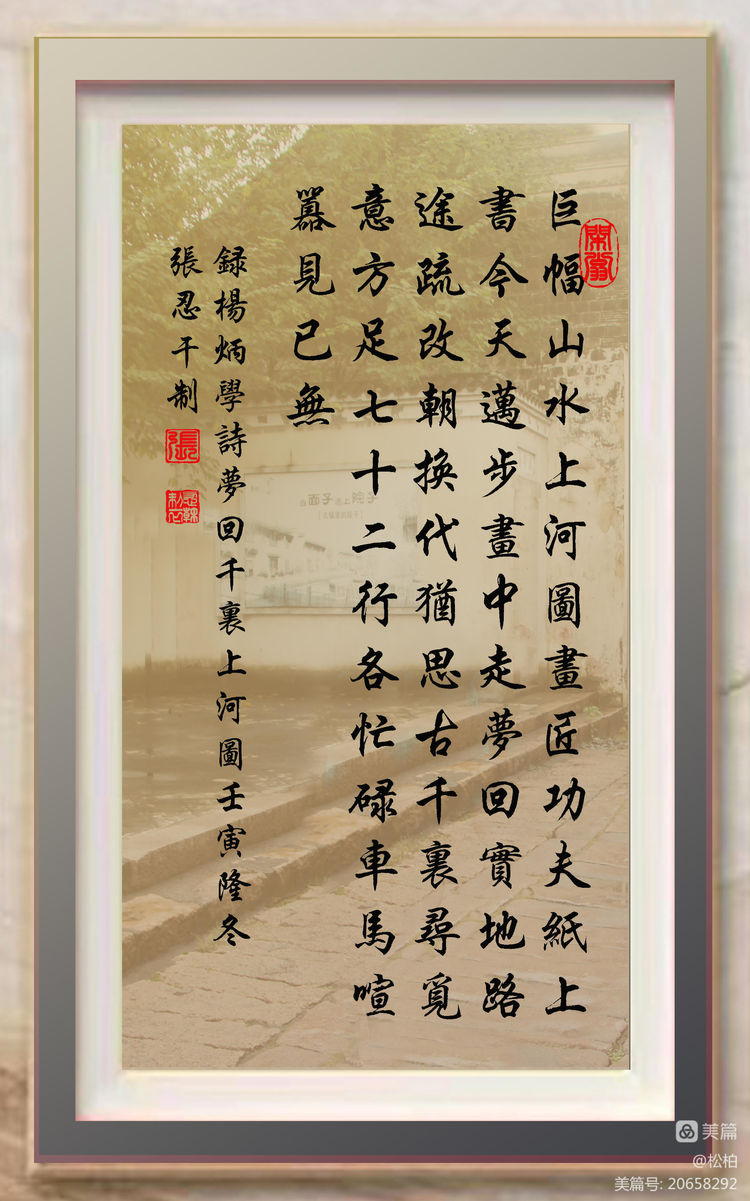 巨幅山水上河圖畫匠功夫紙上
書今天邁步畫中走夢回實地路
途疏改朝換代猶思古千裏尋覓
意方足七十二行各忙碌車馬喧
囂見已無
録楊炳學詩夢回千裏上河圖壬寅隆冬
張忍干制
張
面子 上院子
美篇
@松柏
美篇号: 20658292